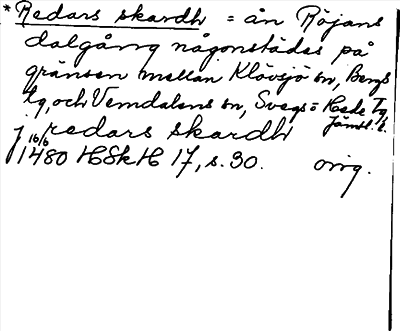 *Redars skardh = ån Röjans
dalgång någonstädes på
gränsen mellan Klövsjö sn, Bergs
tg, och Vemdalens sn, Svegs = Hede Tg,
Jämtl. l.
j redars skardh
16/6
1480 HSkH 17, s. 30. orig.